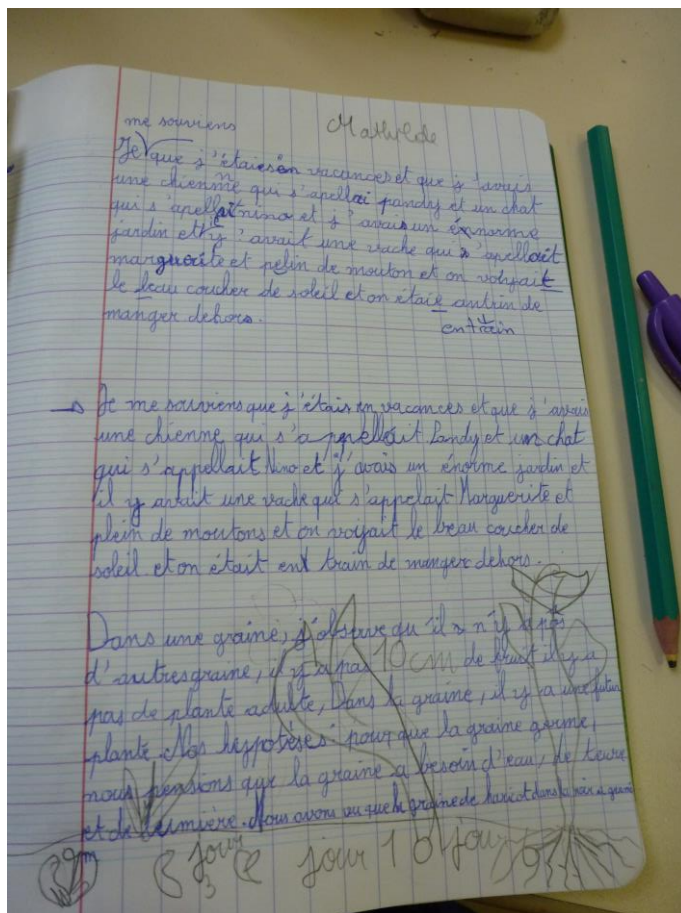 Mathilde
me souviens
Je que j'étaies en vacances et que j'avais
une chienne qui s'apellai pandy et un chat
qui s'apellait nino et j'avais un énorme
jardin et il y avait une vache qui s'apellait
marguerite et pelin de mouton et on voiyait
le beau coucher de soleil et on étaie
manger dehors.
entrain
→ Je me souviens que j'étais en vacances et que j'avais
une chienne qui s'appellait Pandy et un chat
qui s'appellait Nino et j'avais un énorme jardin et
il y avait une vache qui s'appelait Marguerite et
plein de moutons et on voyait le beau coucher de
soleil et on était ent train de manger dehors.
Dans une graine, j'observe qu'il n'y a pas
d'autres graine, il y a pas 10 cm de il y a
pas de plante adulte, Dans la graine, il y a une futur
plante. Nos hyppotèses: pour que la graine germe,
nous pensons que la graine a besoin d'eau, de terre
et de lumière. Nous avons vu que la graine de haricot dans la noir a
jour 3 jour 10 jour